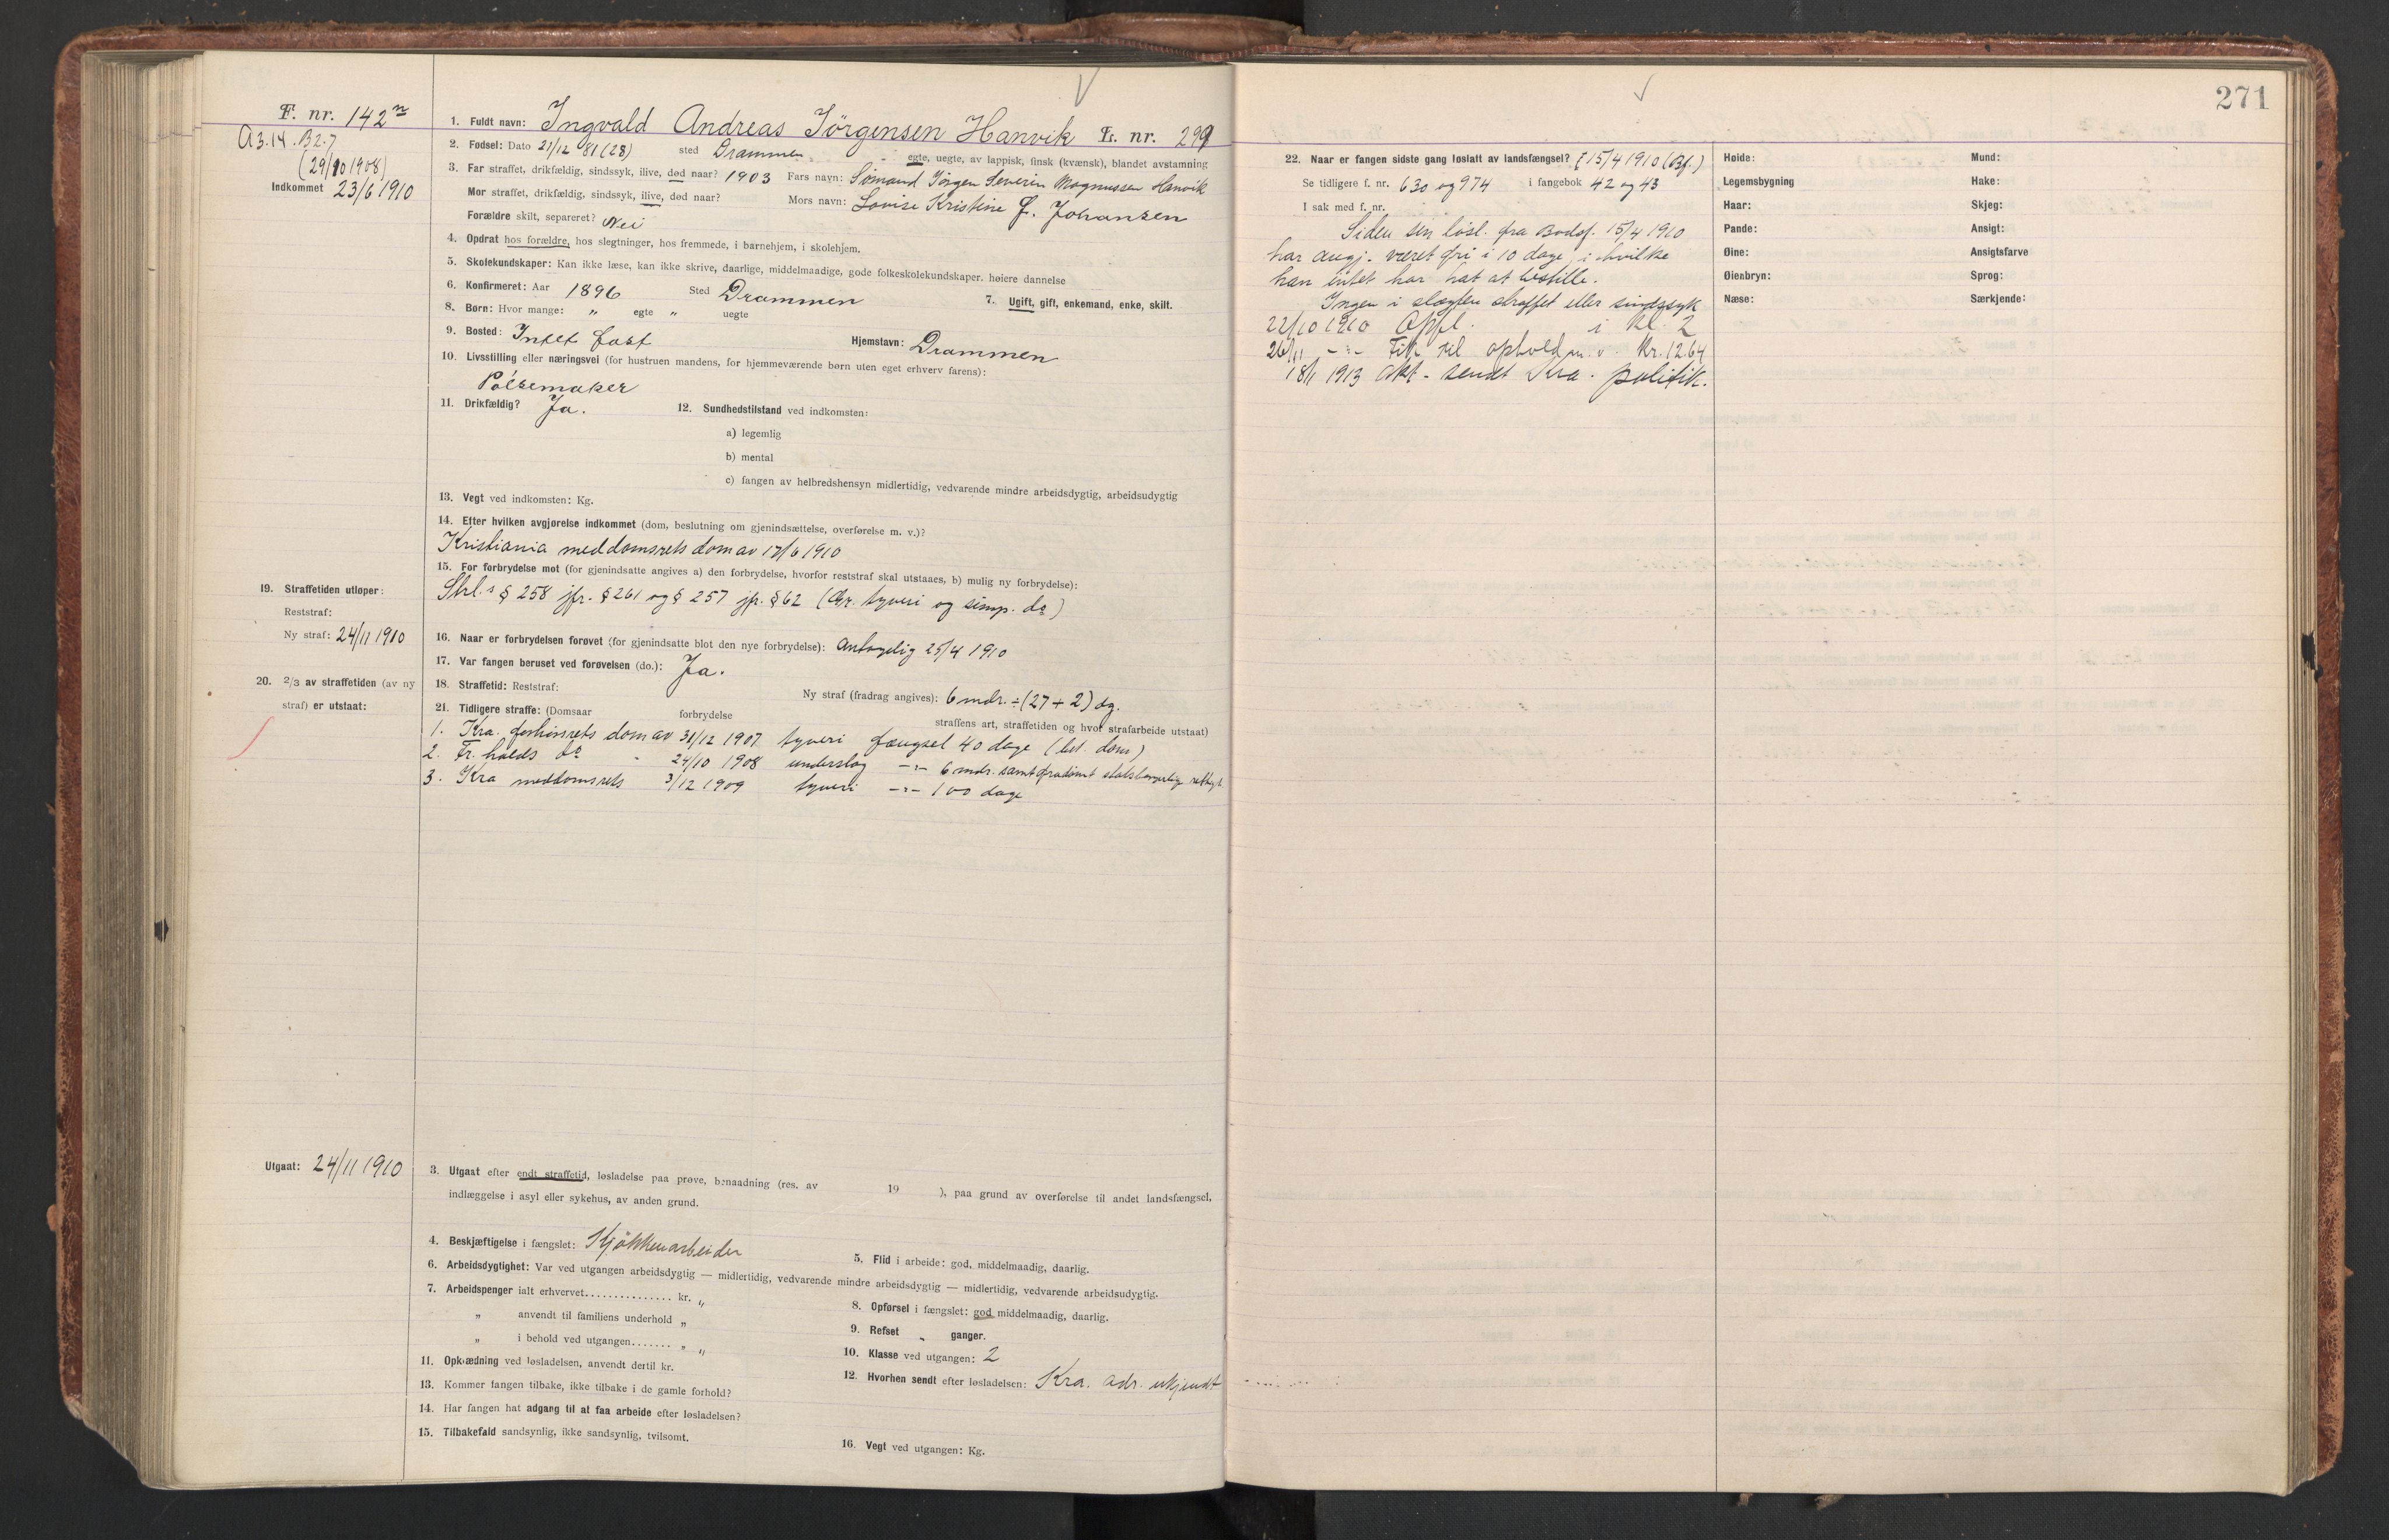 F. nr. 142
A3.14. B2.7
(29/10 1908)
Indkommet 23/6 1910
1. Fuldt navn: Ingvald Andreas Jörgensen Hanvik L. nr. 299
2. Fødsel: Dato 21/12 81 (28) sted Drammen egte, uegte, av lappisk, finsk (kvænsk), blandet avstamning
3. Far straffet, drikfældig, sindssyk, ilive, død naar? 1903 Fars navn: Sømand Jörgen Severin Magnussen Hanvik
Mor straffet, drikfældig, sindssyk, ilive, død naar? Mors navn: Lovise Kristine f. Johansen
Forældre skilt, separeret? Nei
4. Opdrat hos forældre, hos slegtninger, hos fremmede, i barnehjem, i skolehjem.
5. Skolekundskaper: Kan ikke læse, kan ikke skrive, daarlige, middelmaadige, gode folkeskolekundskaper, høiere dannelse
6. Konfirmeret: Aar 1896 Sted Drammen 7. Ugift, gift, enkemand, enke, skilt.
8. Børn: Hvor mange: " egte " uegte
9. Bosted: Intet fast Hjemstavn: Drammen
10. Livsstilling eller næringsvei (for hustruen mandens, for hjemmeværende børn uten eget erhverv farens):
Pölsemaker
11. Drikfældig? Ja. 12. Sundhedstilstand ved indkomsten:
a) legemlig
b) mental
c) fangen av helbredshensyn midlertidig, vedvarende mindre arbeidsdygtig, arbeidsudygtig
13. Vegt ved indkomsten: Kg.
14. Efter hvilken avgjørelse indkommet (dom, beslutning om gjenindsættelse, overførelse m. v.)?
Kristiania meddomsrets dom av 17/6 1910
15. For forbrydelse mot (for gjenindsatte angives a) den forbrydelse, hvorfor reststraf skal utstaaes, b) mulig ny forbrydelse):
Strl.s § 258 jfr. § 261 og § 257 jfr. § 62 (Gr. tyveri og simp. do)
16. Naar er forbrydelsen forøvet (for gjenindsatte blot den nye forbrydelse): Antagelig 25/4 1910
17. Var fangen beruset ved forøvelsen (do.): Ja.
18. Straffetid: Reststraf: Ny straf (fradrag angives): 6 mdr. ÷ (27 + 2) dg.
19. Straffetiden utløper:
Reststraf:
Ny straf: 24/11 1910
20. 2/3 av straffetiden (av ny
straf) er utstaat:
21. Tidligere straffe: (Domsaar forbrydelse straffens art, straffetiden og hvor strafarbeide utstaat)
1. Kra. forhörsrets dom av 31/12 1907 tyveri fængsel 40 dage (bet. dom)
2. Fr.halds do - 24/10 1908 underslag -"- 6 mdr. samt fradömt statsborgerlige rettigh.
3. Kra meddomsrets 3/12 1909 tyveri -"- 100 dage
Utgaat: 24/11 1910
3. Utgaat efter endt straffetid, løsladelse paa prøve, benaadning (res. av 19 ), paa grund av overførelse til andet landsfængsel,
indlæggelse i asyl eller sykehus, av anden grund.
4. Beskjæftigelse i fængslet: Kjökkenarbeider 5. Flid i arbeide: god, middelmaadig, daarlig.
6. Arbeidsdygtighet: Var ved utgangen arbeidsdygtig — midlertidig, vedvarende mindre arbeidsdygtig — midlertidig, vedvarende arbeidsudygtig.
7. Arbeidspenger ialt erhvervet............... kr. " 8. Opførsel i fængslet: god middelmaadig, daarlig.
" anvendt til familiens underhold " 9. Refset " ganger.
" i behold ved utgangen....... " " 10. Klasse ved utgangen: 2
11. Opklædning ved løsladelsen, anvendt dertil kr. 12. Hvorhen sendt efter løsladelsen: Kra. adr. ukjendt
13. Kommer fangen tilbake, ikke tilbake i de gamle forhold?
14. Har fangen hat adgang til at faa arbeide efter løsladelsen?
15. Tilbakefald sandsynlig, ikke sandsynlig, tvilsomt. 16. Vegt ved utgangen: Kg.
271
22. Naar er fangen sidste gang løslatt av landsfængsel? E 15/4 1910 (Bf.)
Se tidligere f. nr. 630 og 974 i fangebok 42 og 43
I sak med f. nr.
Siden sin lösl. fra Bodsf. 15/4 1910
har angj. været fri i 10 dage, i hvilke
han intet har hat at bestille.
Ingen i slegten straffet eller sindssyk
22/10 1910 Opfl. i kl. 2
26/11 -"- Fik til ophold m. v. Kr. 12.64
18/1 1913 Akt. sendt Kra. politik.
Høide: Mund:
Legemsbygning Hake:
Haar: Skjeg:
Pande: Ansigt:
Øine: Ansigtsfarve
Øienbryn: Sprog:
Næse: Særkjende: